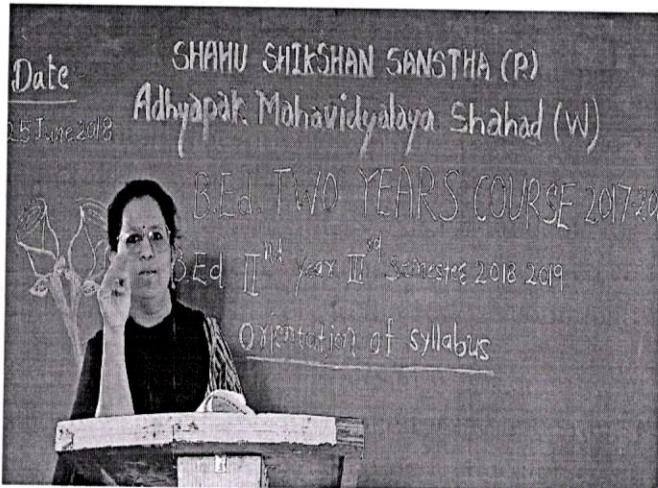 Date
25 June 2018
SHAHU SHIKSHAN SANSTHA (P.)
Adhyapak Mahavidyalaya Shahad (W)
B.Ed. TWO YEARS COURSE 2017-20
B.Ed IInd year IIIrd Semester 2018 2019
Orientation of syllabus